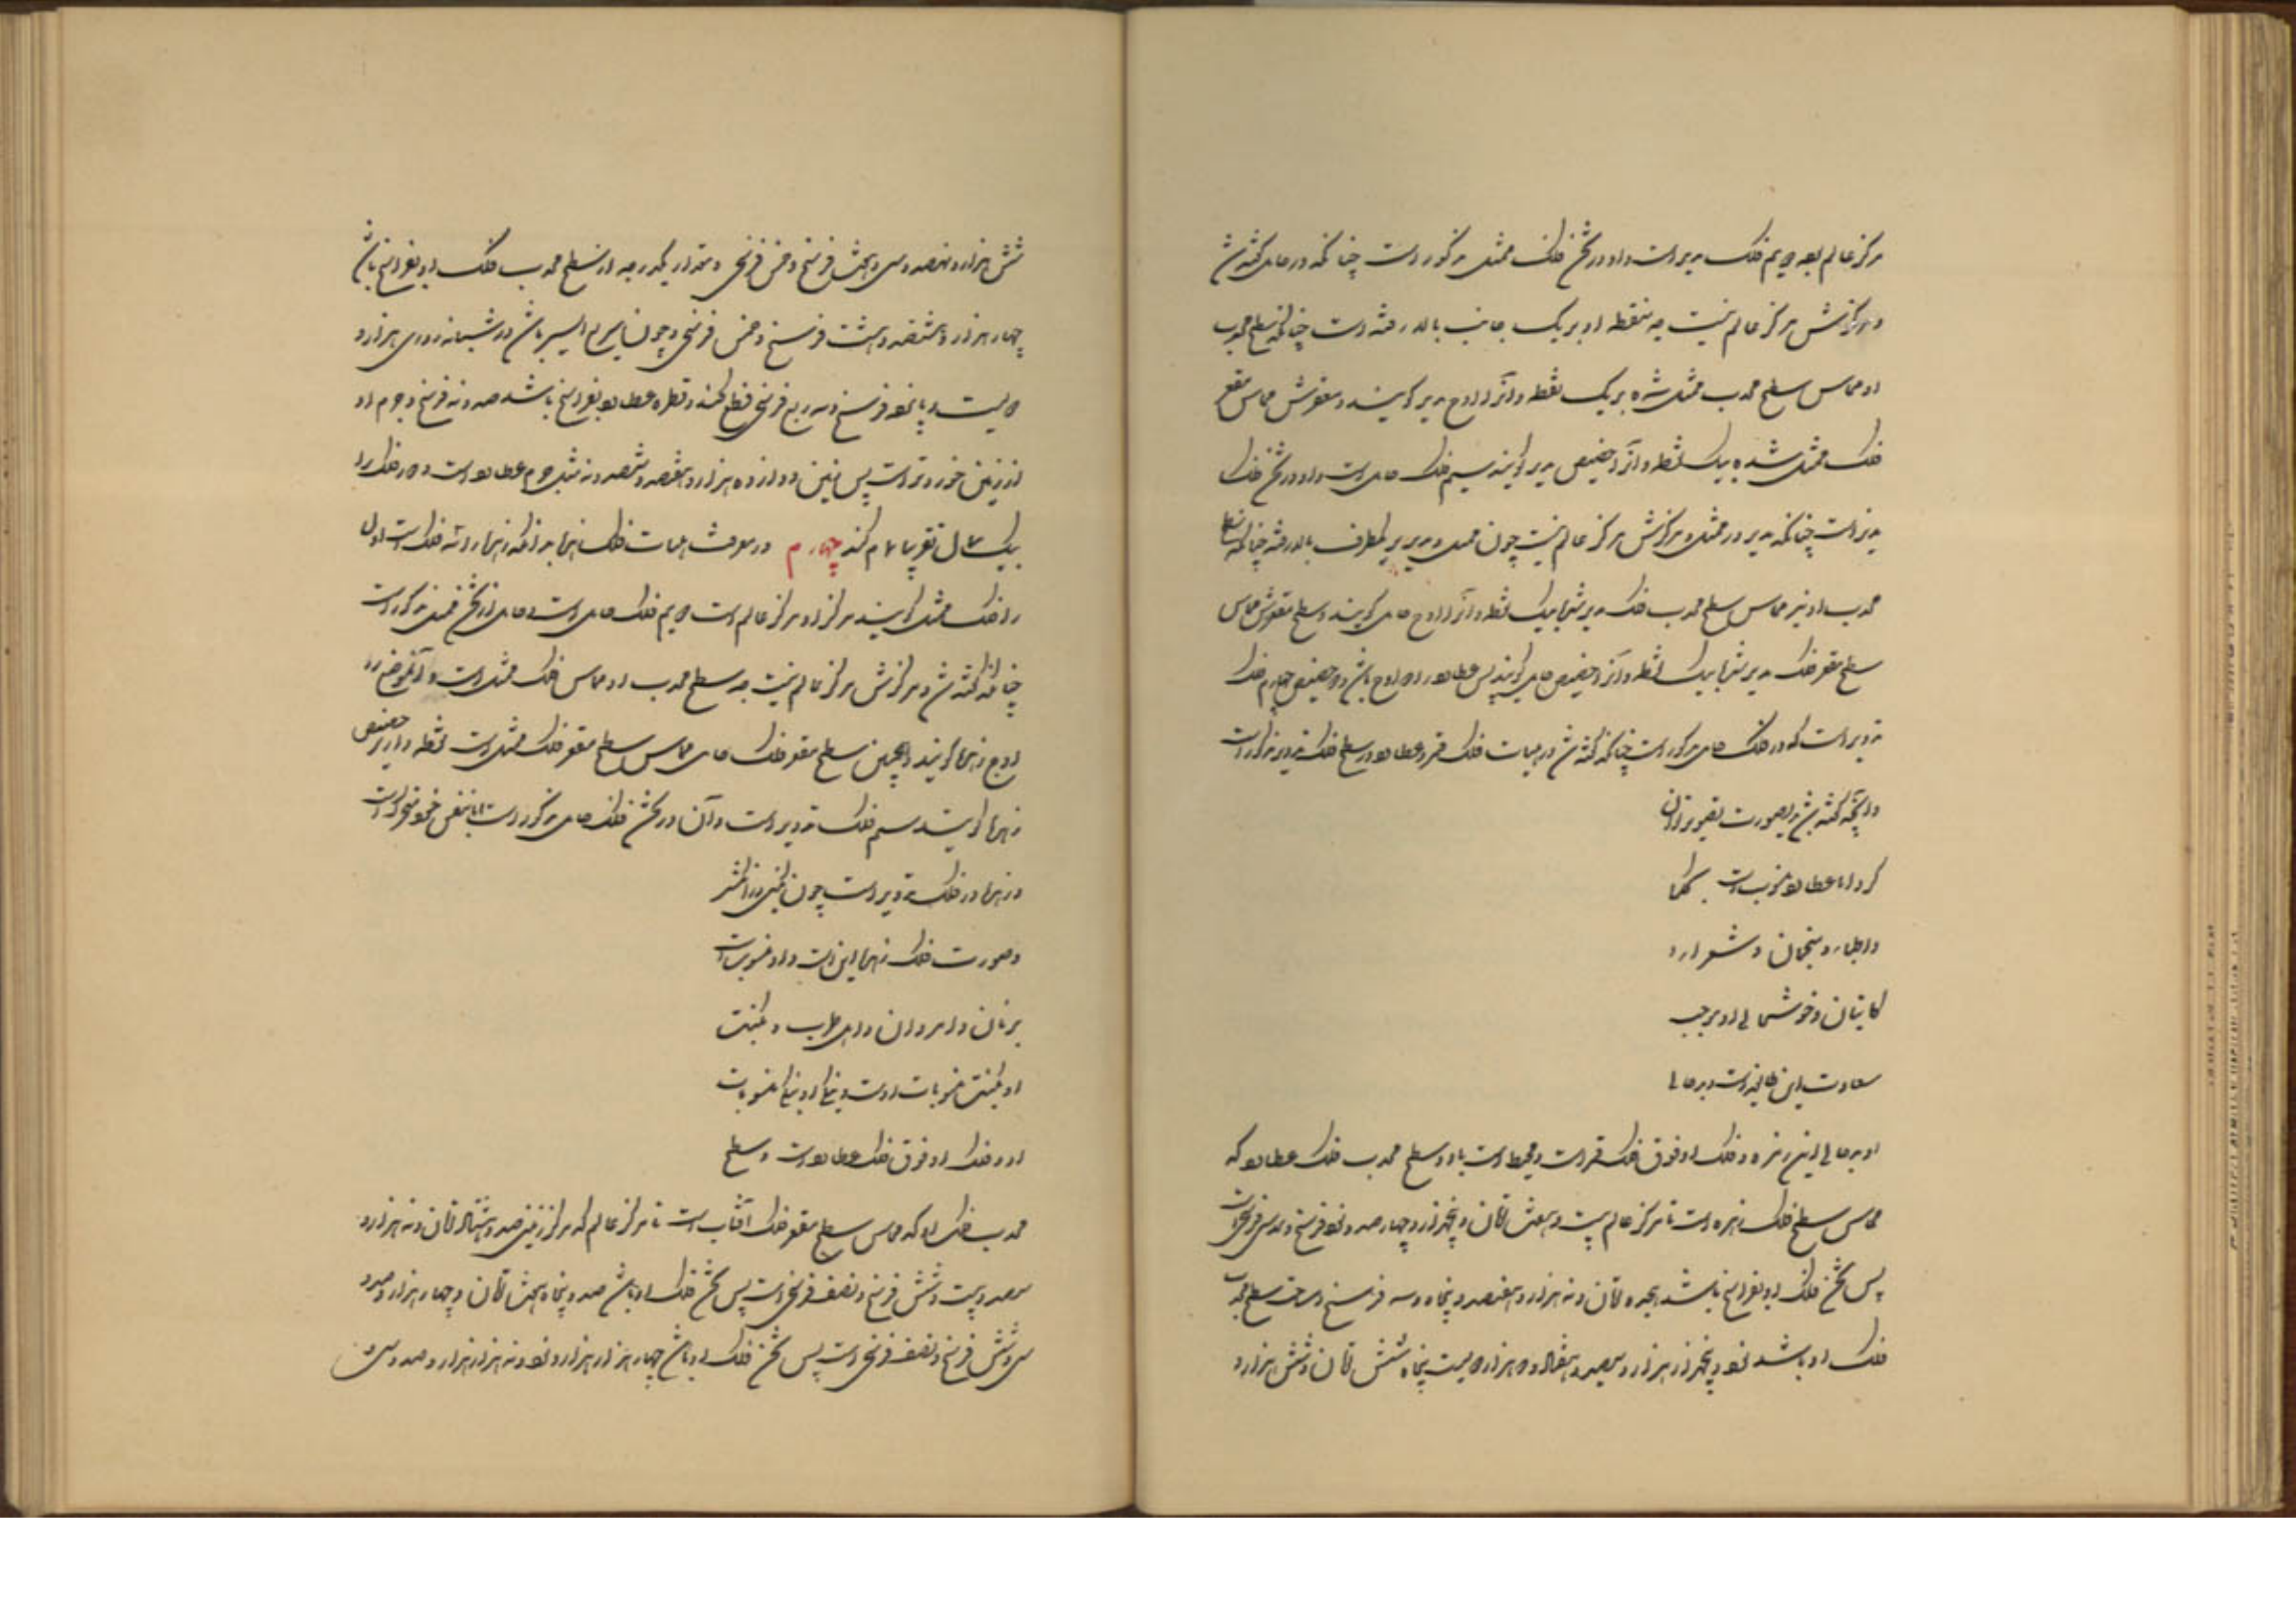 مرکز عالم بود دویم فلک مدیر است و او در ثخن فلک ممثل مذکور است چنانکه در حامل گفته شد
و مرکزش مرکز عالم نیست چه منقطه او بر یک جانب بالا رفته است چنانکه سطح محدب
او مماس سطح محدب ممثل شده بر یک نقطه و آنرا اوج مدیر گویند و مقعرش مماس مقعر
فلک ممثل شده بیک نقطه و آنرا حضیض مدیر گویند سیم فلک حامل است و او در ثخن فلک
مدیر است چنانکه مدیر در ممثل و مرکزش مرکز عالم نیست چون ممثل و مدیر بر یکطرف بالا رفته چنانکه سطح
محدب او نیز مماس سطح محدب فلک مدیر شد بیک نقطه و آنرا اوج حامل گویند و سطح مقعرش مماس
سطح مقعر فلک مدیر شد بیک نقطه و آنرا حضیض حامل گویند پس عطارد را دو اوج باشد و دو حضیض چهارم فلک
تدویر است که در فلک حامل مذکور است چنانکه گفته شد در هیات فلک قمر و عطارد در سطح فلک تدویر مذکور است
و آنچه گفته شد بدین صورت تصویر توان
کرد اما عطارد منسوب است بحکما
و اطبا و منجمان و شعرا و
کاتبان و خوشحالی او موجب
سعادت این طایفه است و بدحالی
او بدحالی این زمره و فلک او فوق فلک قمر است و محیط است باو و سطح محدب فلک عطارد که
مماس سطح فلک زهره است تا مرکز عالم بیست و هفت تمان و پنجهزار و چهارصد و نود فرسخ و سدس فرسخی است
پس ثخن فلک او بفراسخ باشد هجده تمان و نه هزار و هفتصد و پنجاه و سه فرسخ و مساحت سطح محدب
فلک او باشد نود و پنجهزار هزار و سیصد و هفتاد و دو هزار و دویست پنجاه شش تمان و شش هزار و
شش هزار و نهصد و سی و هشت فرسخ و خمس فرسخی و مقدار یکدرجه از سطح محدب فلک او بفراسخ باشد
چهار هزار و هشتصد و هشت فرسخ و خمس فرسخی و چون سریع السیر باشد در شبانه روزی هزار و
دویست و پانصد فرسخ و سه ربع فرسخی قطع کند و قطر عطارد بفراسخ باشد صد و نه فرسخ و جرم او
از زمین خوردتر است پس زمین دوازده هزار و هفتصد و شصد و نه مثل جرم عطارد است و دور فلک را
بیک سال تقریبا تمام کند چهارم در معرفت هیات فلک زهرا بدانکه زهرا را سه فلک است اول
را فلک ممثل گویند مرکز او مرکز عالم است دویم فلک حامل است و حامل در ثخن ممثل مذکور است
چنانکه گفته شد و مرکزش مرکز عالم نیست چه سطح محدب او مماس فلک ممثل است و آن موضع را
اوج زهرا گویند و همچنین سطح مقعر فلک حامل مماس سطح مقعر فلک ممثل است نقطه و آنرا حضیض
زهرا گویند سیم فلک تدویر است و آن در ثخن فلک حامل مذکور است
و زهرا در فلک تدویر است چون نگین در انگشتر
و صورت فلک زهرا این است و او منسوب است
بزنان و امردان و اهل طرب
او منسوبات اوست و نیکی او نیکی منسوبات
او و فلک او فوق فلک عطارد است و سطح
محدب فلک او که مماس سطح مقعر فلک آفتاب است تا مرکز عالم که مرکز زمین صد و هشتاد تمان و نه هزار و
سیصد و بیست و شش فرسخ و نصف فرسخی است پس ثخن فلک او باشد صد و پنجاه هشت تمان و چهار هزار و صد و
سی و شش فرسخ و نصف فرسخی است پس ثخن فلک او باشد چهار هزار هزار و نود و نه هزار هزار و صد و سی و